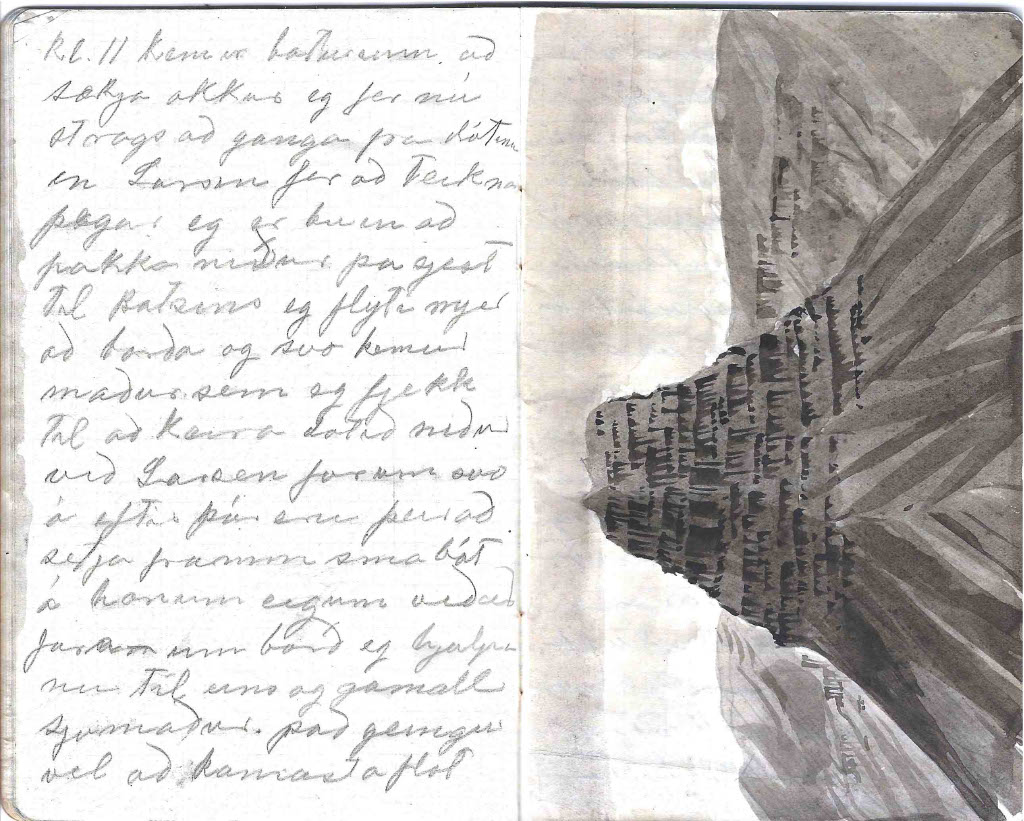 Kl. 11 kemur baturinn að
sækja okkur eg fer nú
strags að ganga fra dótinu
en Larsen fer að teikna
þegar eg er buin að
pakka niður þa sjest
til Batsins eg flyti mjer
að borða og svo kemur
maður sem eg fjekk
til að Keira dotið niður
við Larsen forum svo
á eftir þár eru þeir að
setja framm sma bát
á honum eigum við að
fara um borð eg hjalpa
nu til eins og gamall
sjomaður. það geingur
vel að komast a flot